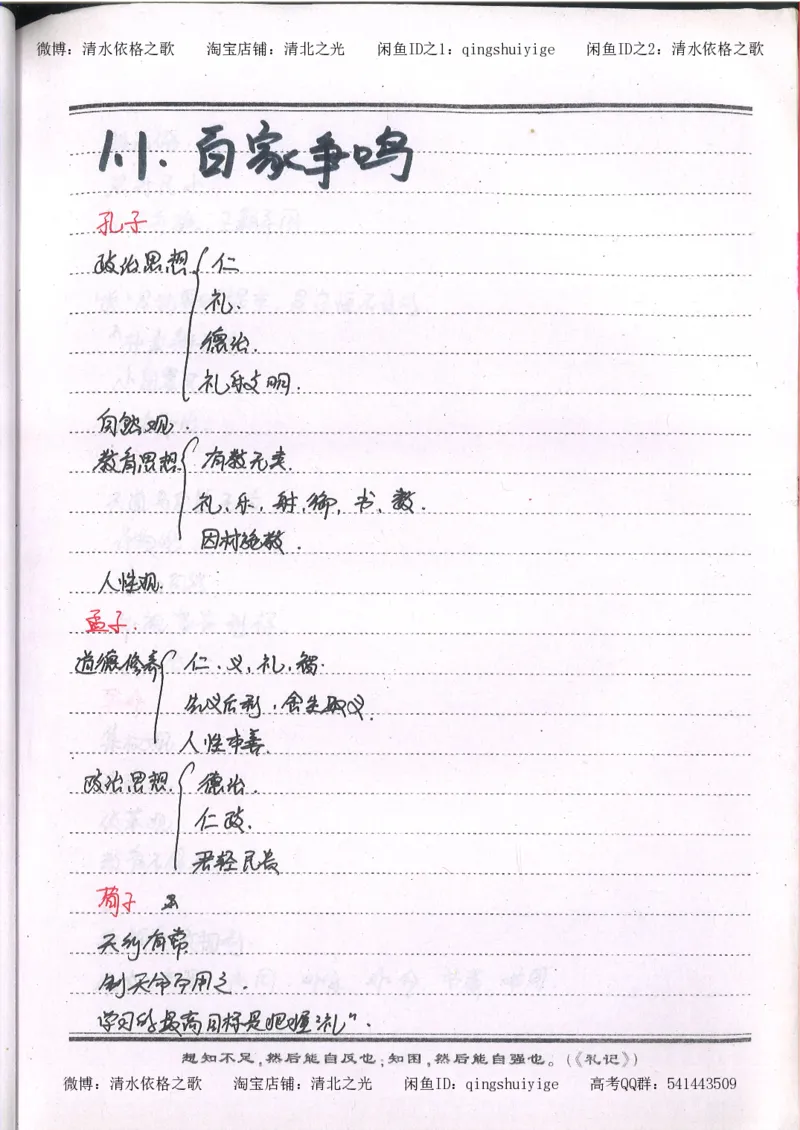 微博：清水依格之歌 淘宝店铺：清北之光 闲鱼ID之1：qingshuiyige 闲鱼ID之2：清水依格之歌
1.1. 百家争鸣
孔子
政治思想 仁
礼.
德治.
礼乐文明.
自然观.
教育思想 有教无类.
礼、乐、射、御、书、数.
因材施教.
人性观.
孟子.
道德修养 仁、义、礼、智.
先义后利，舍生取义.
人性本善.
政治思想. 德治.
仁政.
君轻民贵
荀子
天行有常
制天命而用之.
学习的最高目标是把握“礼”.
想知不足，然后能自反也；知困，然后能自强也。（《礼记》）
微博：清水依格之歌 淘宝店铺：清北之光 闲鱼ID：qingshuiyige 高考QQ群：541443509